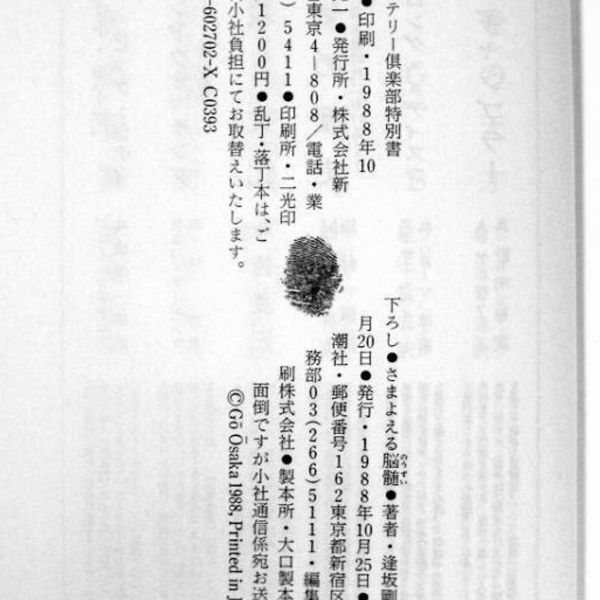 テリー倶楽部特別書
下ろし●さまよえる脳髄●著者・逢坂剛
のうずい
●印刷・1988年10
月20日●発行・1988年10月25日●
一●発行所・株式会社新
潮社・郵便番号162東京都新宿区
東京4−808／電話・業
務部03(266)5111・編集
) 5411●印刷所・二光印
刷株式会社●製本所・大口製本
1200円●乱丁・落丁本は、ご
面倒ですが小社通信係宛お送
小社負担にてお取替えいたします。
©Gō Ōsaka 1988, Printed in J
-602702-X C0393